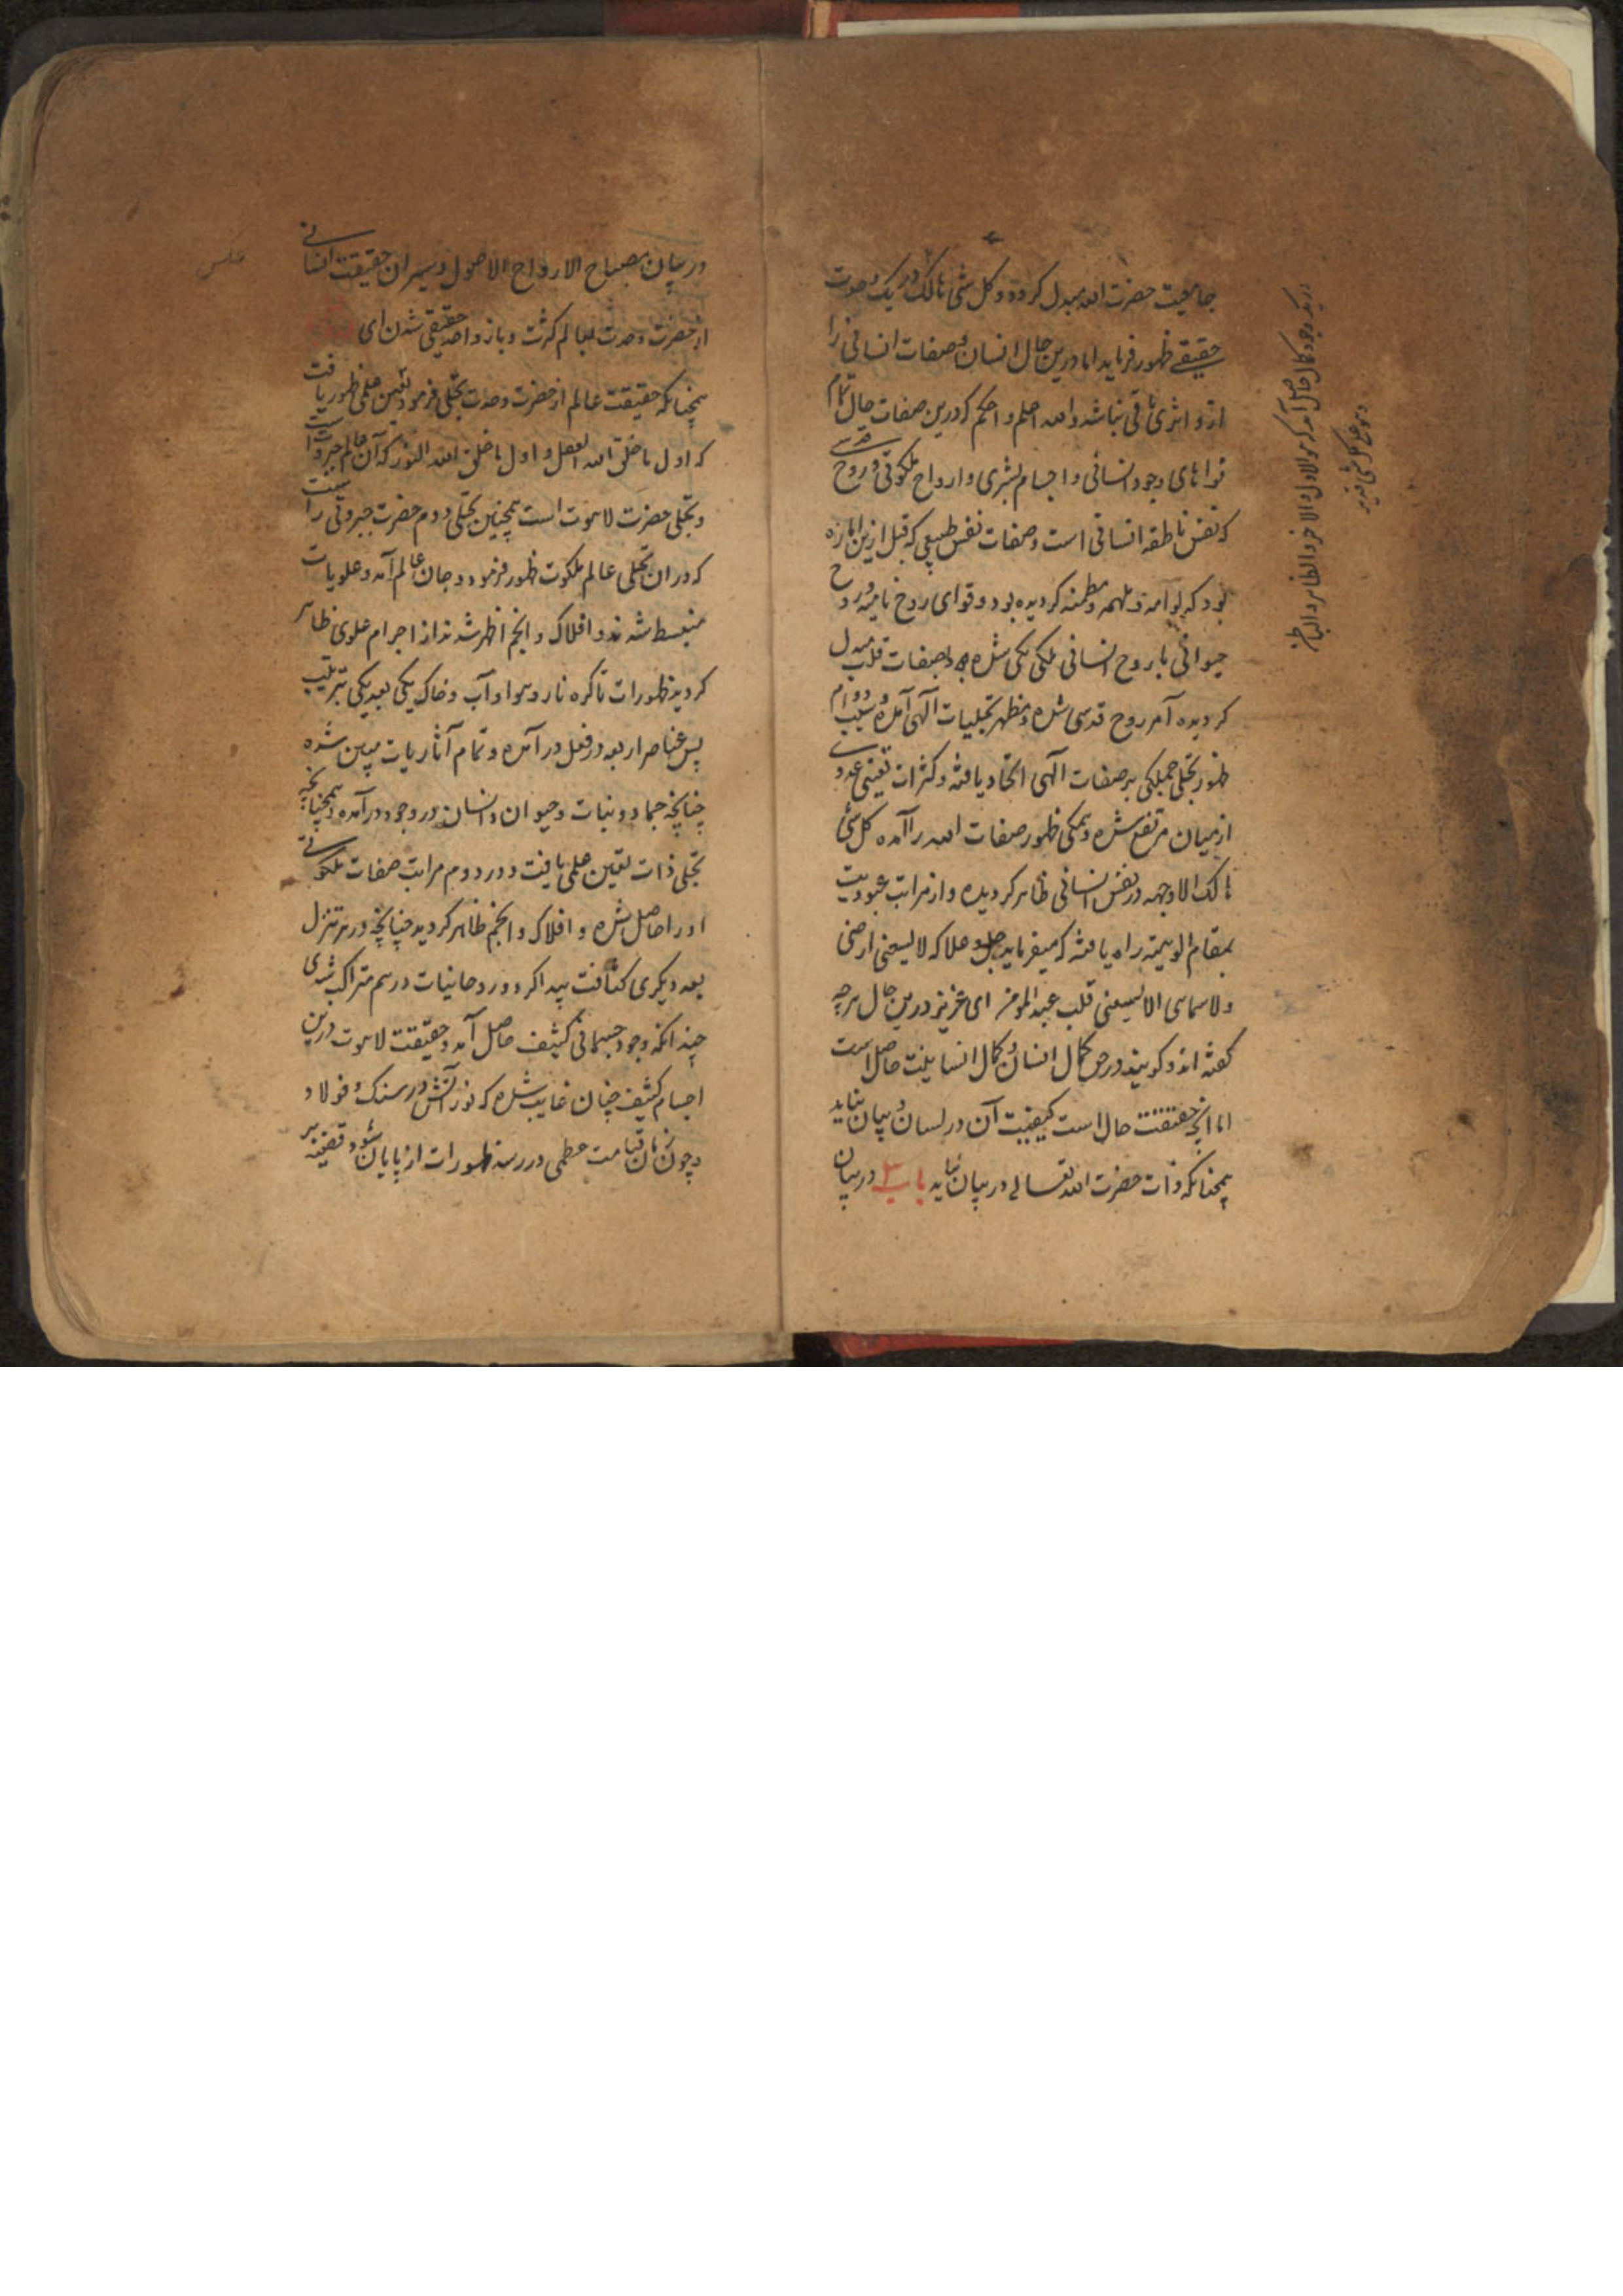 جامعیت حضرت الله مبدل کرده و کل شی هالک در یک وحدت
حقیقے ظهور فرماید اما درین حال انسان و صفات انسانی را
ازو اثری باقی نباشد والله اعلم و احکم که درین صفات حال تمام
قواهای وجود انسانی و اجسام بشری و ارواح ملکوتی و روح قدسے
که نفس ناطقه انسانی است و صفات نفس طبیعی که قبل ازین اماره
بود که لوامه و ملهمه و مطمئنه کردیده بود و قوای روح نامیه و روح
حیوانی با روح انسانی ملکی یکی شده و بصفات قلب مبدل
کردیده آمر روح قدسی شده و مظهر تجلیات آلهی آمده و بسبب دوام
ظهور تجلی جملکی بر صفات آلهی اتحاد یافته و کثرات تعینی عددے
از میان مرتفع شده و یمکی ظهور صفات الله را آمده کل شئ
هالک الا وجهه در نفس انسانی ظاهر کردیده و از مراتب عبودیت
بمقام الوهیته راه یافته که میفرماید جل و علا که لا یسعنی ارضی
ولا سمای الا لیسعنی قلب عبد المومن ای عزیز درین حال هرچه
کفته اند و کویند در حق کمال انسان و کمال انسانیت حاصل است
اما آنچه حقیقت حال است کیفیت آن در لسان و بیان نیاید
همچنانکه ذات حضرت الله تعالے در بیان نیاید باب ۳ در بیان
در یکوجود کمال حاصل آمد که هو الاول والاخر والظاهر والباطن
وهو علی کل شئ قدیر
در بیان مصباح الارواح الاصول و سیران حقیقت انسانے
از حضرت وحدت بعالم کثرت و باز واحد حقیقی شدن ای
همچنانکه حقیقت عالم از حضرت وحدت تجلی فرمود و تعین علمی ظهور یافت
که اول ما خلق الله العقل و اول ما خلق الله النور که آن عالم جبروت است
و تجلی حضرت لاهوت است همچنین تجلی دوم حضرت جبروتی راست
که در ان تجلی عالم ملکوت ظهور فرمود و جان عالم آمد و علویات
منبسط شدند و افلاک و انجم اظهر شدند از اجرام علوی ظاهر
کردید ظهورات تا کره نار و هوا و آب و خاک یکی بعد یکی بترتیب
پس عناصر اربعه در فعل در آمده و تمام آثاریات مبین شده
چنانچه جماد و نبات و حیوان و انسان در وجود در آمده همچنانچه
تجلی ذات تعین علمی یافت و در دوم مراتب صفات ملکوتے
او را حاصل شده و افلاک و انجم ظاهر کردید چنانچه در هر تنزل
بعد دیکری کثافت پیدا کرد و روحانیات در هم متراکب شدی
چندانکه وجود جسمانی کثیف حاصل آمد و حقیقت لاهوت درین
اجسام کثیف چنان غایب شده که نور آتش در سنک و فولاد
و چون زمان قیامت عظمی در رسد ظهورات از پایان شود و قضیه بر
عکس